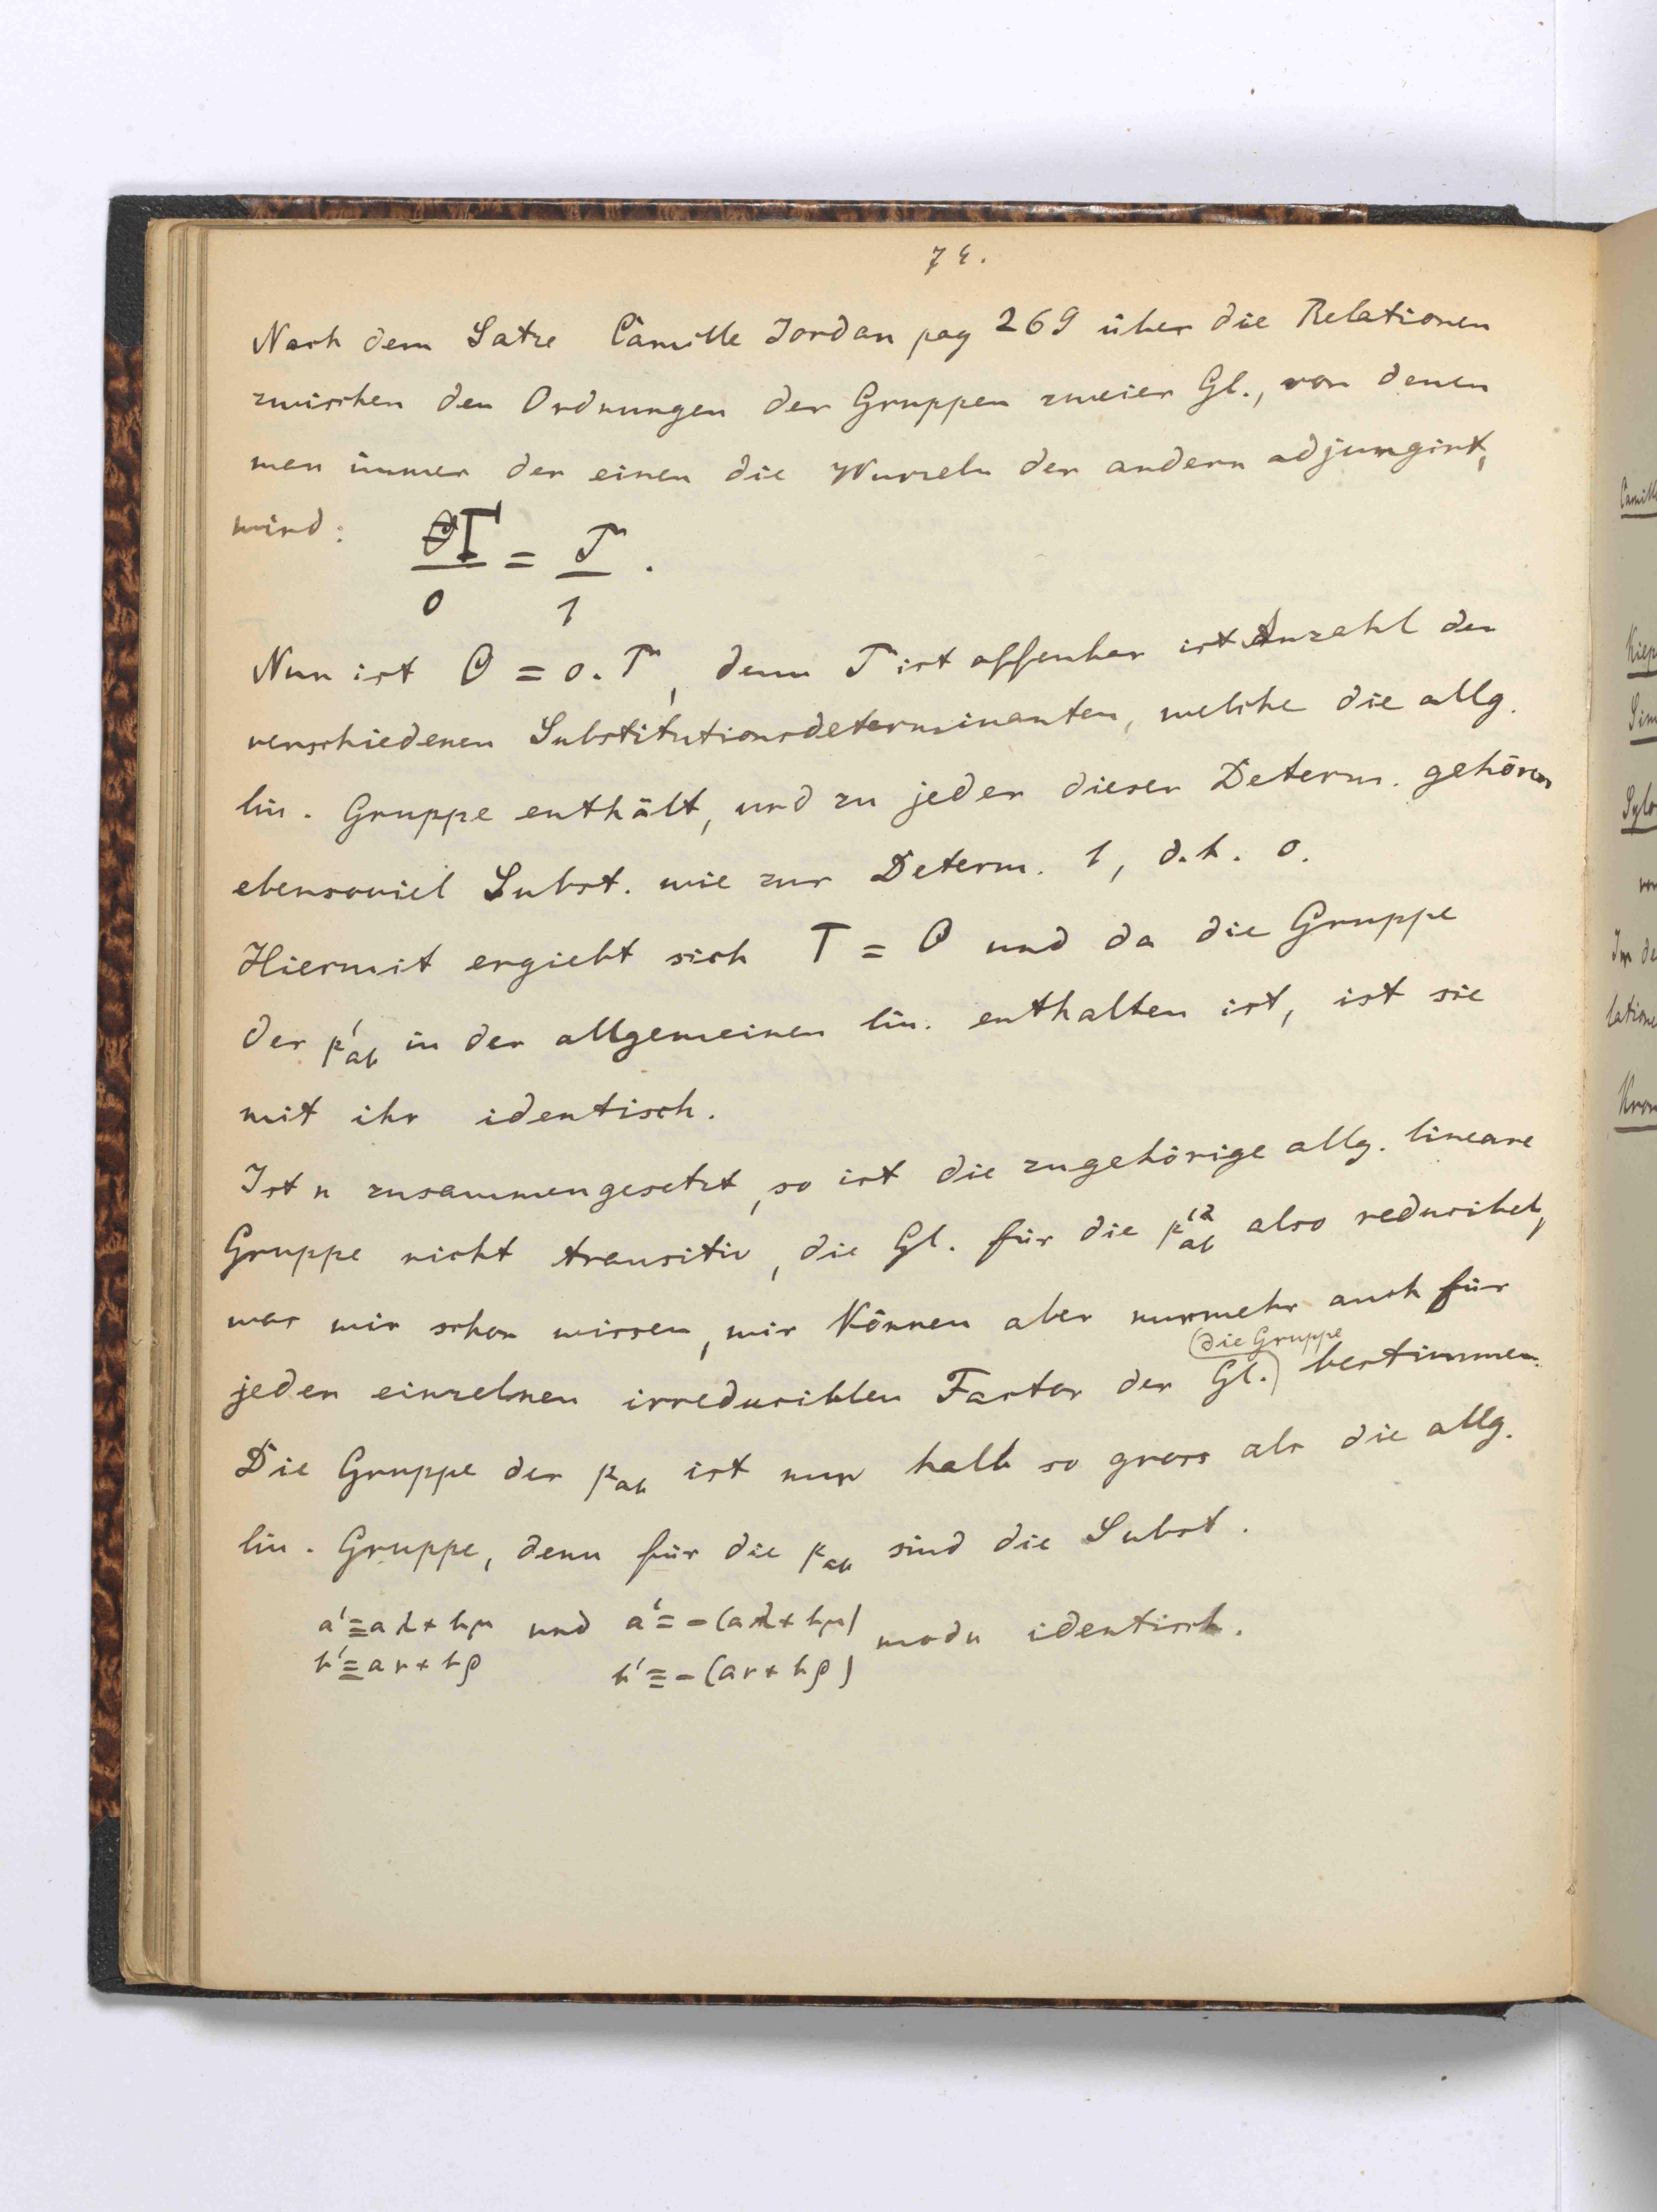 74.
Nach dem Satze Camille Jordan pag 269 über die Relationen
zwischen den Ordnungen der Gruppen zweier Gl., von denen
man immer der einen die Wurzeln der andern adjungirt,
wird: T/o = 𝒯/1.
Nun ist O = o. 𝒯, denn 𝒯 ist offenbar ist Anzahl der
verschiedenen Substitutionsdeterminanten, welche die allg.
lin. Gruppe enthält, und zu jeder dieser Determ. gehören
ebensoviel Subst. wie zur Determ. 1, d.h. o.
Hiermit ergiebt sich T = O und da die Gruppe
der p'ab in der allgemeinen lin. enthalten ist, ist sie
mit ihr identisch.
Ist n zusammengesetzt, so ist die zugehörige allg. lineare
Gruppe nicht transitiv, die Gl. für die p'²ab also reducibel,
was wir schon wissen, wir können aber nunmehr auch für
jeden einzelnen irreduciblen Factor der Gl. die Gruppe bestimmen.
Die Gruppe der pab ist nur halb so gross als die allg.
lin. Gruppe, denn für die pab sind die Subst.
a' ≡ aλ + bμ und a' ≡ -(aλ + bμ) modn identisch.
b' ≡ aν + bρ b' ≡ -(aν + bρ)
Camill
Kiep
Sim
Sylo
vo
In de
latione
Kron